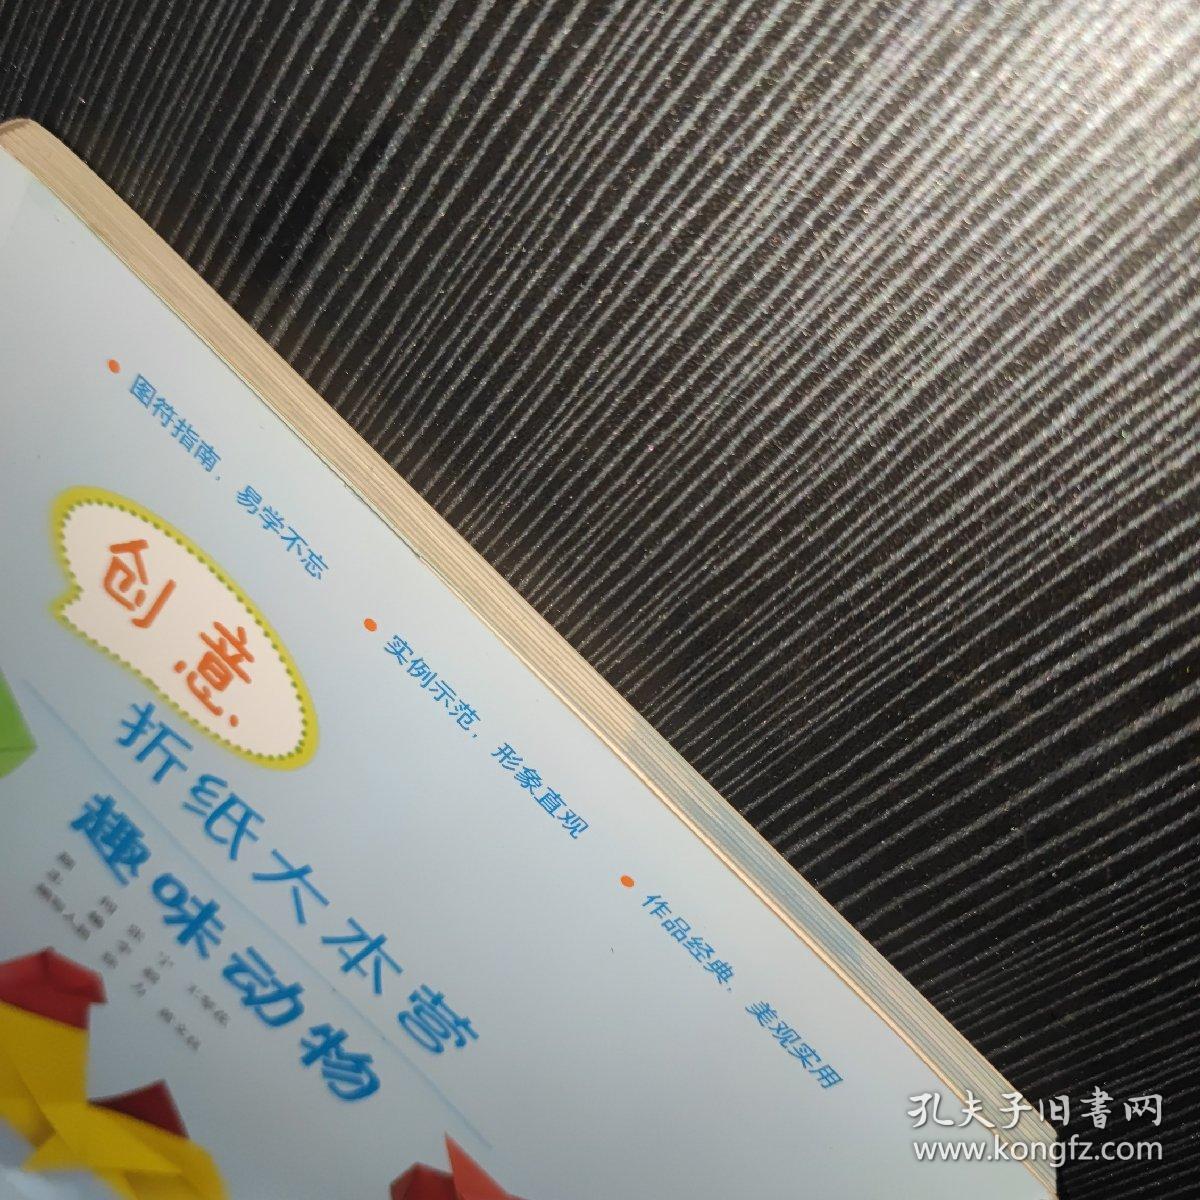 图符指南，易学不忘
实例示范，形象直观
作品经典，美观实用
创意
折纸大本营
趣味动物
孔夫子旧書网
www.kongfz.com